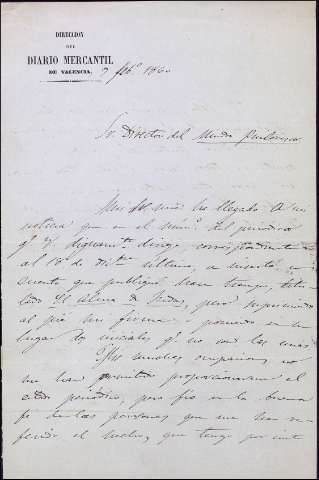 DIRECCION
DEL
DIARIO MERCANTIL
DE VALENCIA.
9 feb.º 1860
Sr. Director del Mundo Pintoresco
Muy Sor. mio: ha llegado á mi
noticia que en el núm.º del periodico
q.e V. dignam.te dirige, correspondiente
al 18 de dic.bre ultimo, se insertó un
cuento que publiqué hace tiempo, titu-
lado El alma de, pero suprimiendo
al pié mi firma y poniendo en su
lugar dos iniciales q.e no son las mias.
Mis muchas ocupaciones no
me han permitido proporcionarme el
citado periódico, pero fio en la buena
fe de las personas que me han re-
ferido el hecho, que tengo por cierto